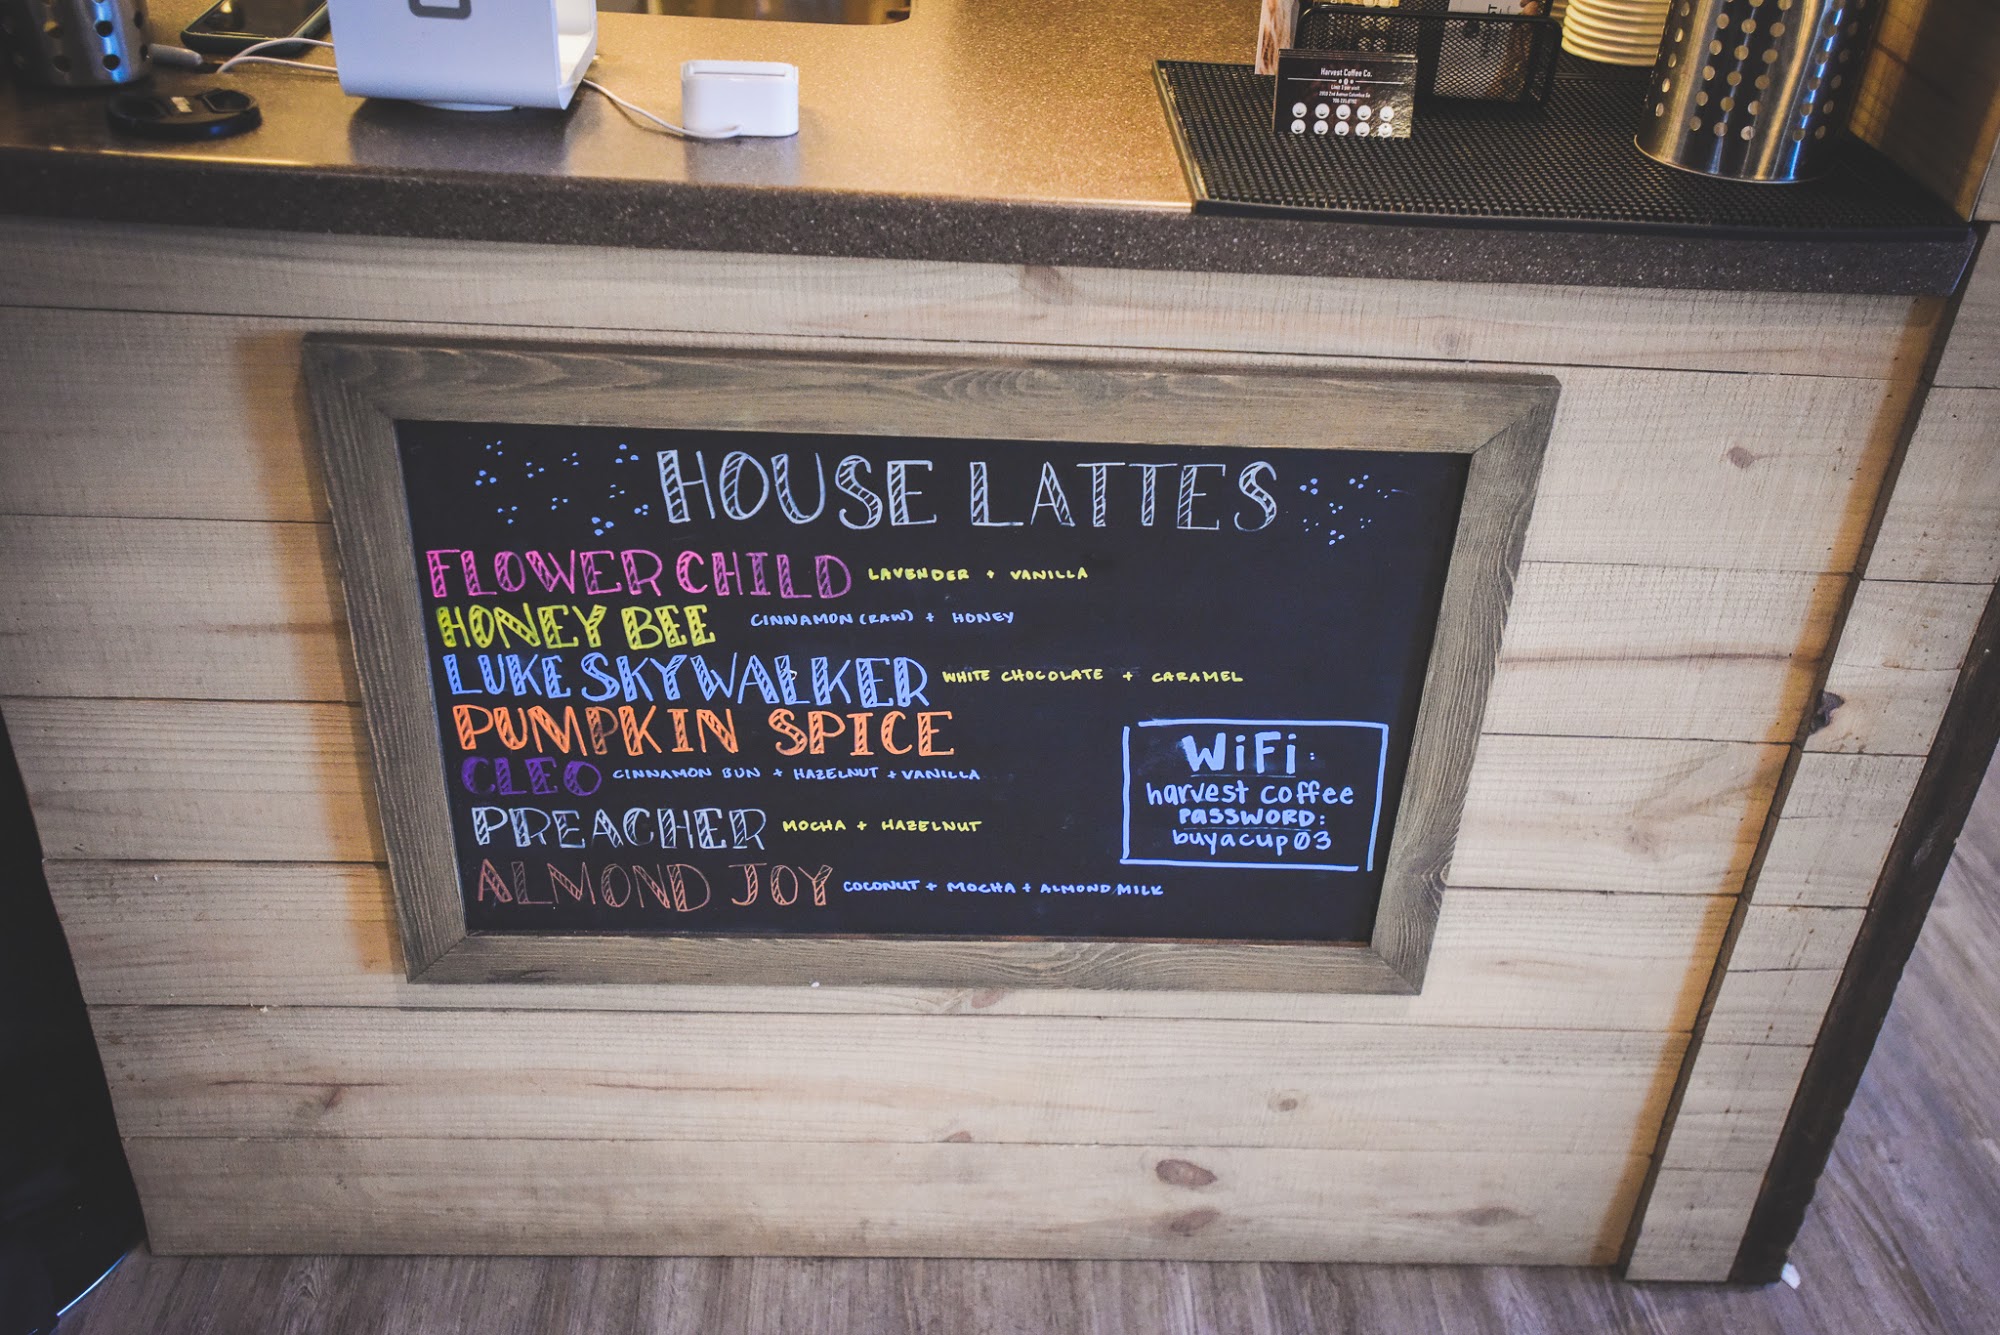 Harvest Coffee Co.
HOUSE LATTES
FLOWER CHILD LAVENDER + VANILLA
HONEY BEE CINNAMON (RAW) + HONEY
LUKE SKYWALKER WHITE CHOCOLATE + CARAMEL
PUMPKIN SPICE
CLEO CINNAMON BUN + HAZELNUT + VANILLA
PREACHER MOCHA + HAZELNUT
ALMOND JOY COCONUT + MOCHA + ALMOND MILK
WiFi:
harvest coffee
PASSWORD:
buyacup03